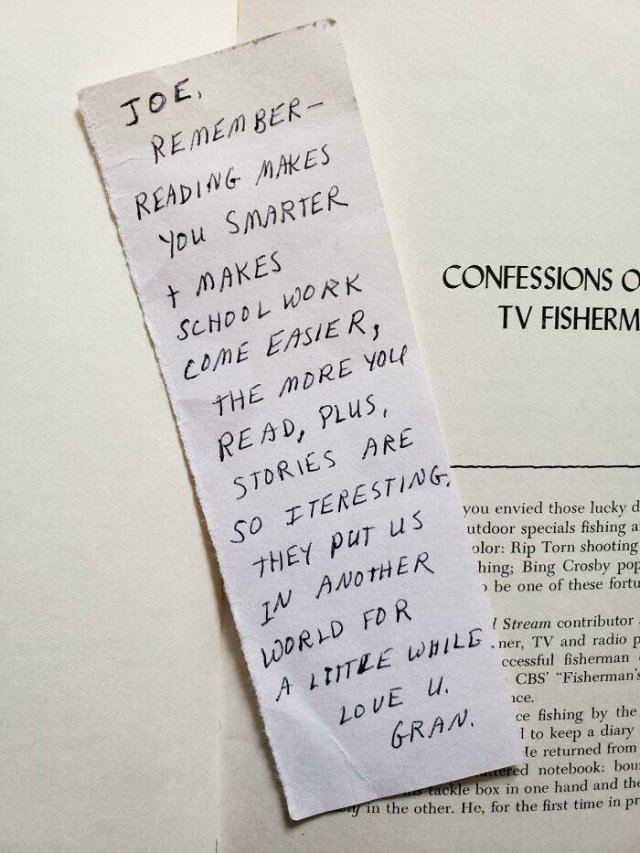 JOE,
REMEMBER-
READING MAKES
YOU SMARTER
+ MAKES
SCHOOL WORK
COME EASIER,
THE MORE YOU
READ, PLUS,
STORIES ARE
SO ITERESTING.
THEY PUT US
IN ANOTHER
WORLD FOR
A LITTLE WHILE.
LOVE U.
GRAN.
CONFESSIONS O
TV FISHERM
you envied those lucky d
utdoor specials fishing a
olor: Rip Torn shooting
hing; Bing Crosby pop
be one of these fortu
Stream contributor
ner, TV and radio p
ccessful fisherman
CBS' "Fisherman's
nce.
ce fishing by the
to keep a diary
le returned from
ttered notebook: bou
tackle box in one hand and the
in the other. He, for the first time in pr